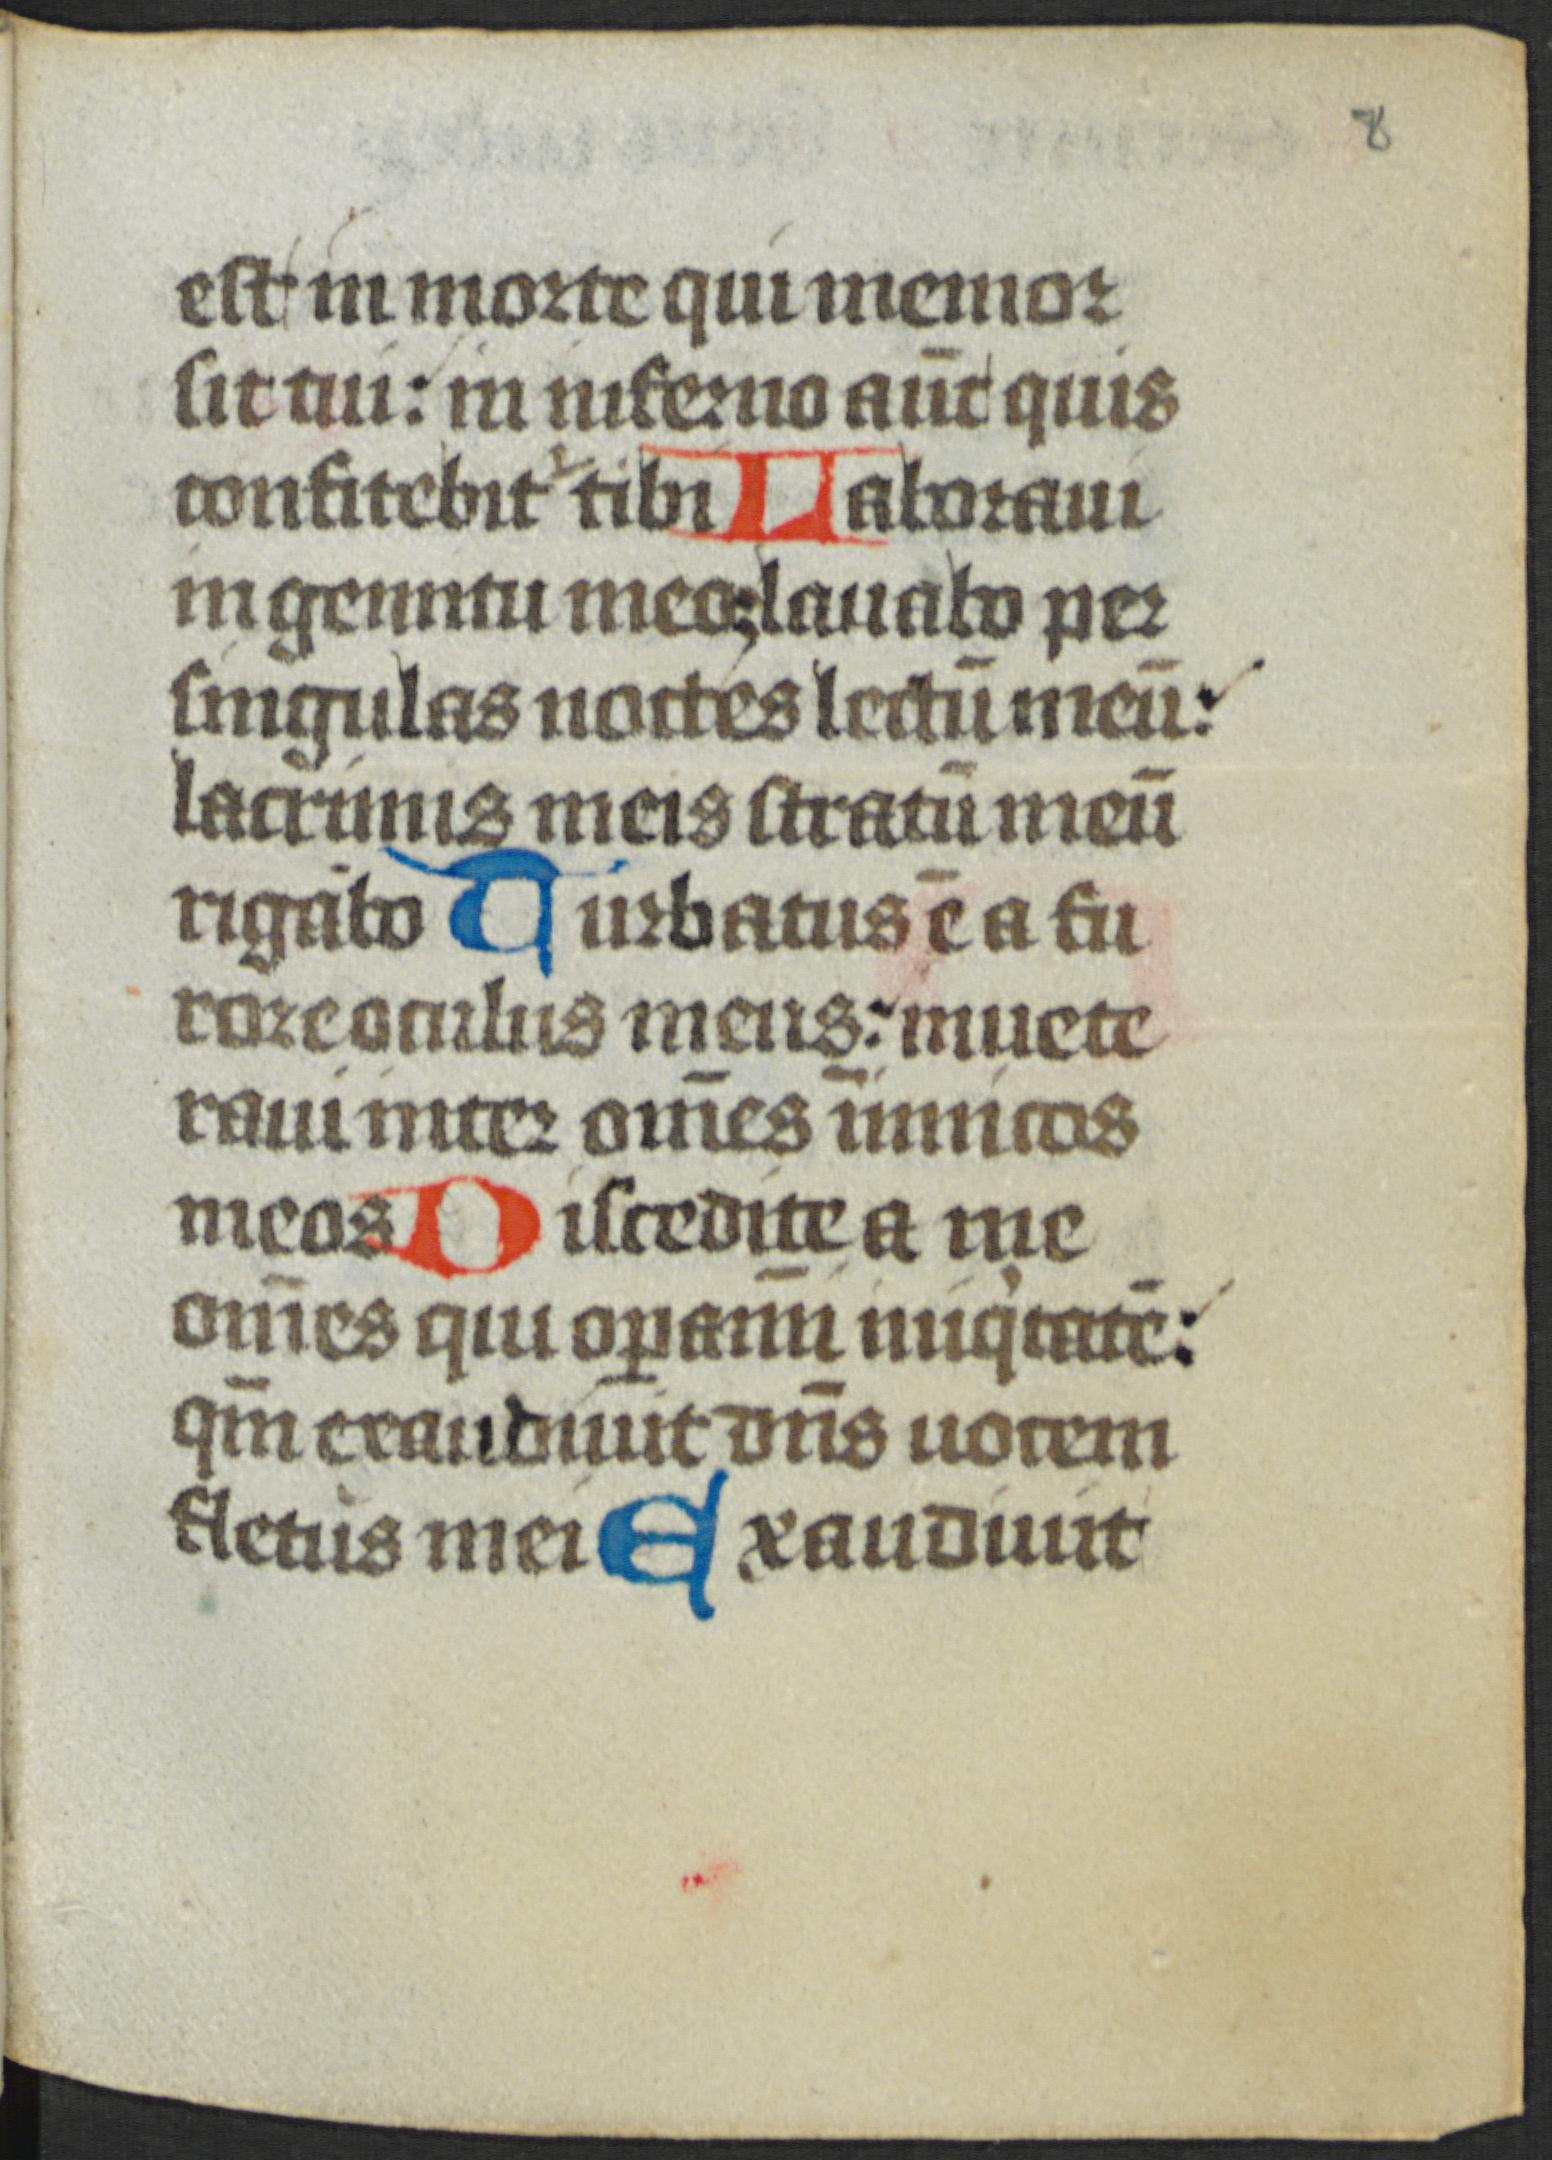 8
est in morte qui memor
sit tui: in inferno aūt quis
confitebit᷑ tibi Laboraui
in gemitu meo; lauabo per
singulas noctes lectū meū:
lacrimis meis stratū meū
rigabo Turbatus ē a fu
rore oculus meus: inuete
raui inter om̄es īimicos
meos Discedite a me
om̄es qui oꝑamı̄ iniqͥtatē:
qm̄ exaudiuit dn̄s uocem
fletus mei Exaudiuit